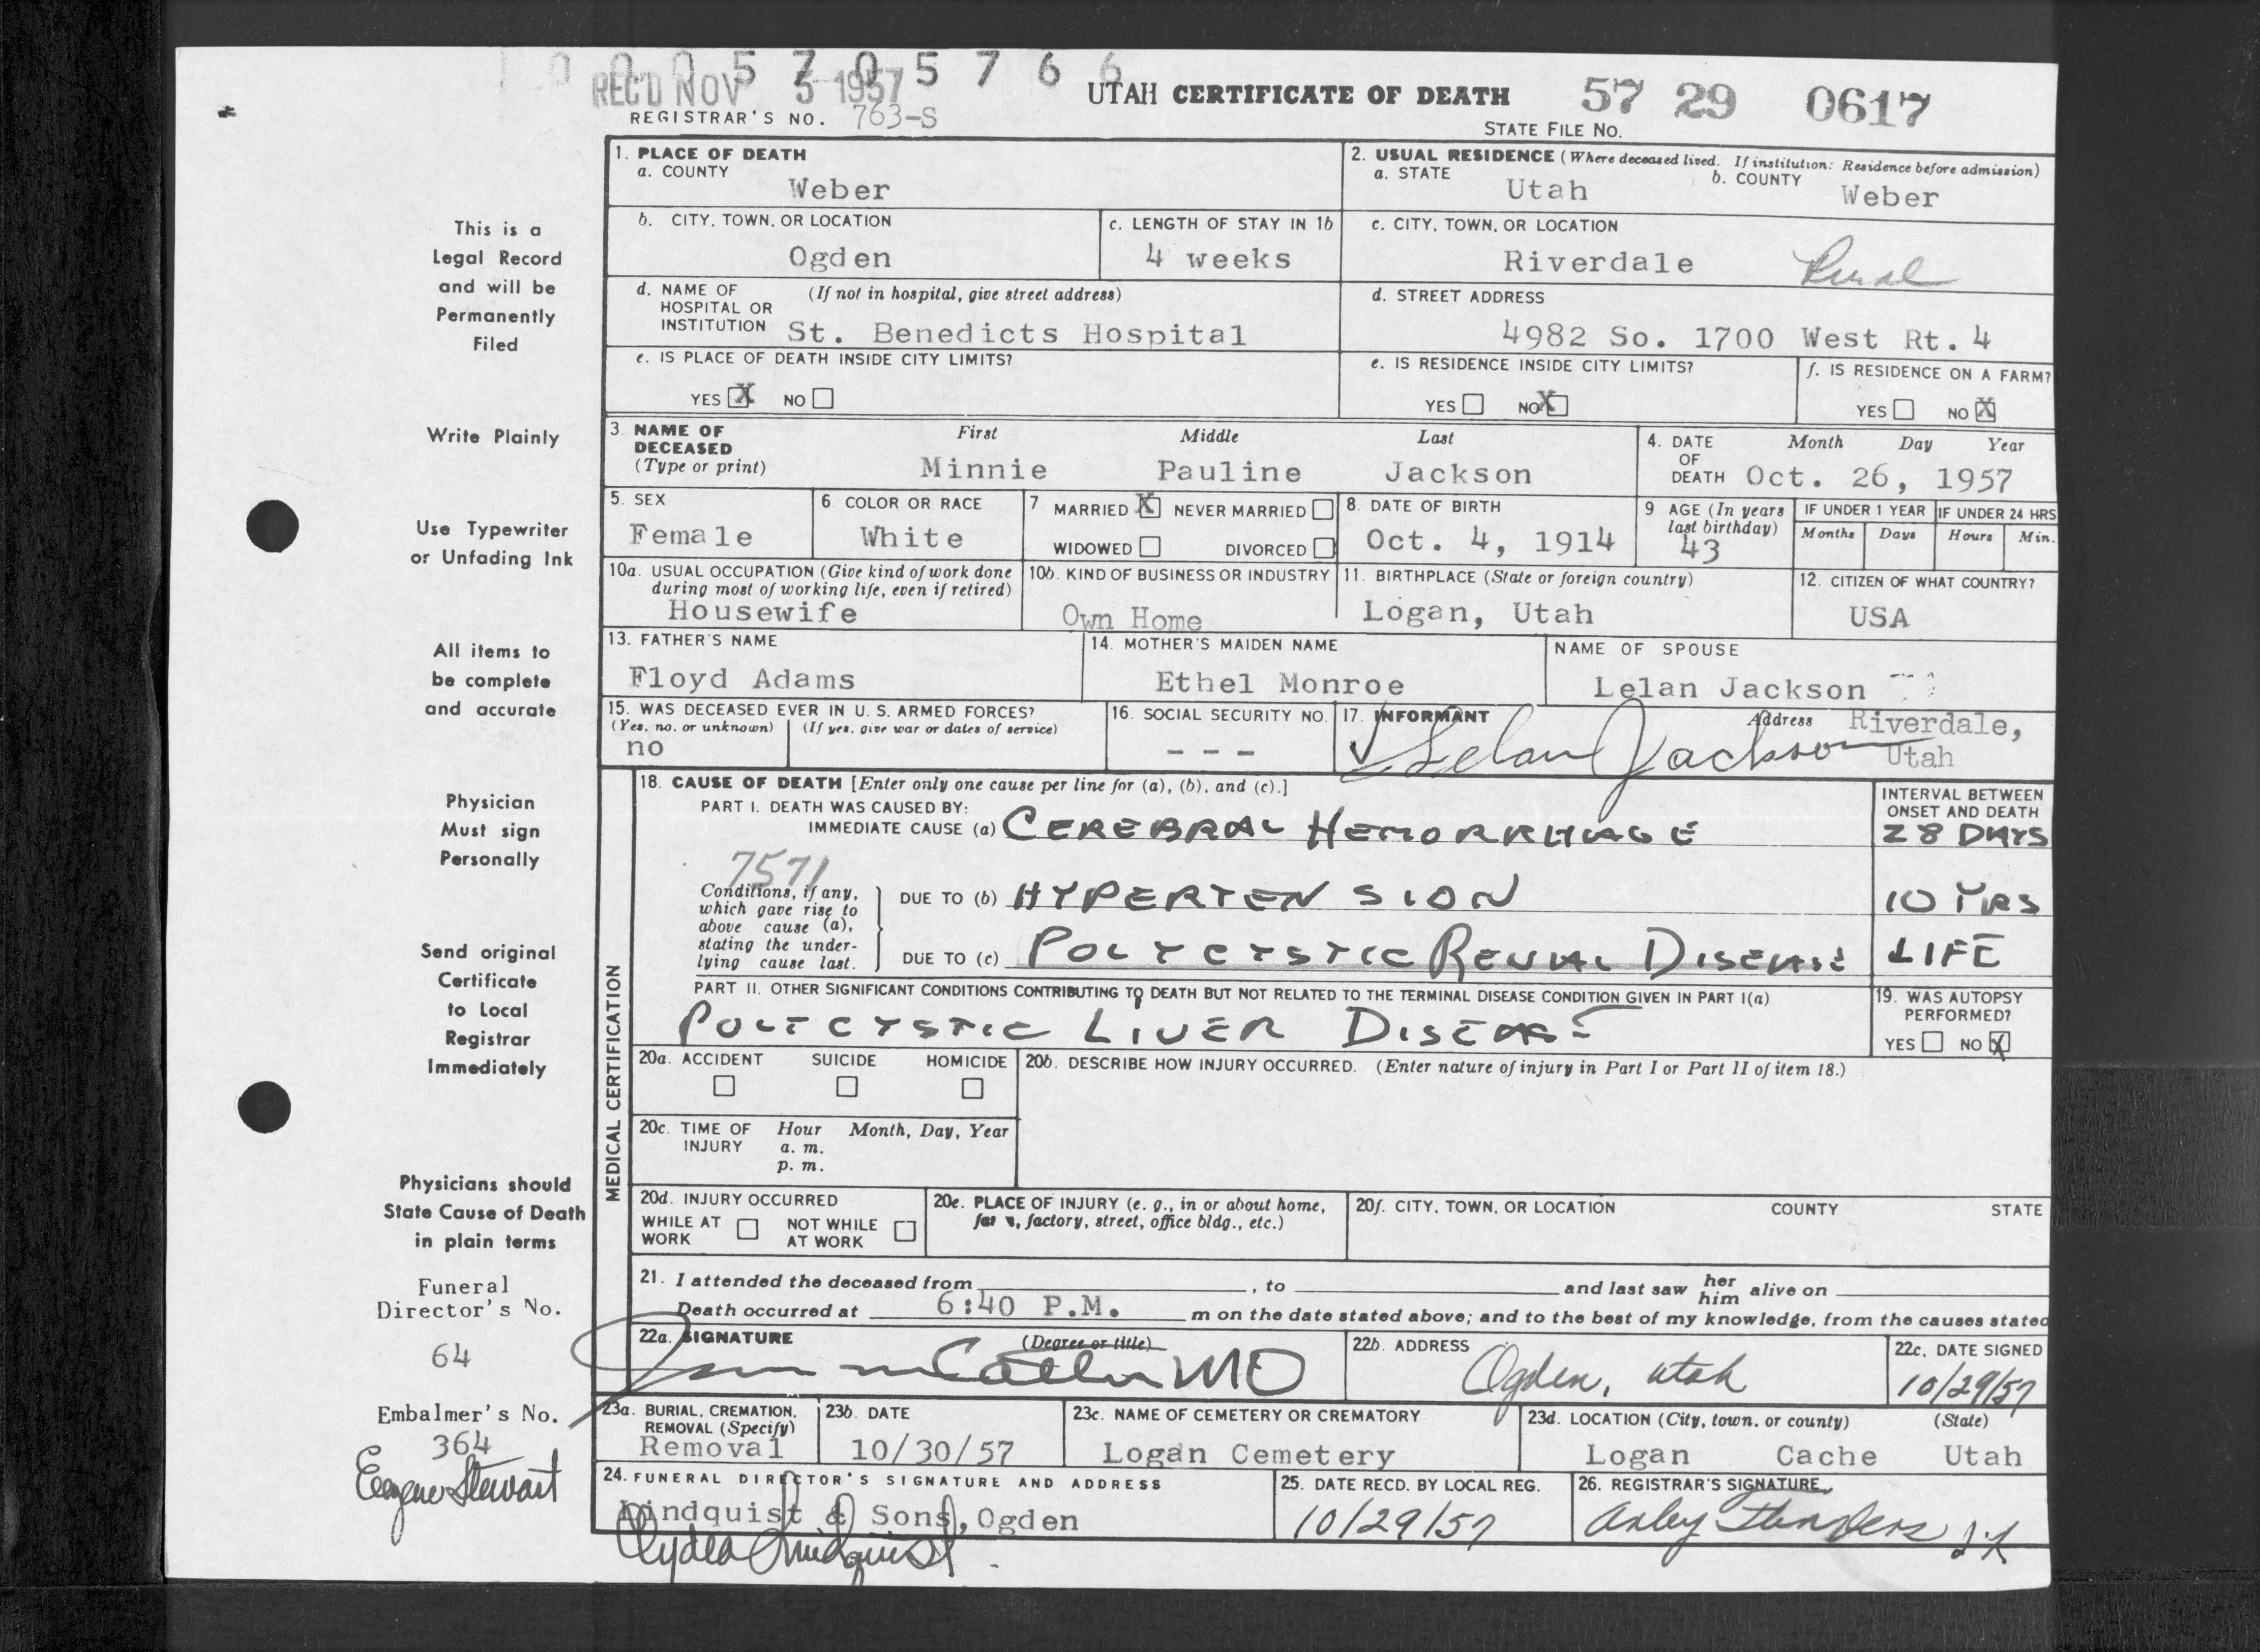 1 0 0 0 5 7 0 5 7 6 6
REC'D NOV 5 1957
UTAH CERTIFICATE OF DEATH 57 29 0617
REGISTRAR'S NO. 763-S
STATE FILE NO.
This is a
Legal Record
and will be
Permanently
Filed
Write Plainly
Use Typewriter
or Unfading Ink
All items to
be complete
and accurate
Physician
Must sign
Personally
Send original
Certificate
to Local
Registrar
Immediately
Physicians should
State Cause of Death
in plain terms
Funeral
Director's No.
64
Embalmer's No.
364
Eugene Stewart
1. PLACE OF DEATH
a. COUNTY
Weber
2. USUAL RESIDENCE (Where deceased lived. If institution: Residence before admission)
a. STATE Utah b. COUNTY Weber
b. CITY, TOWN, OR LOCATION
Ogden
c. LENGTH OF STAY IN 1b
4 weeks
c. CITY, TOWN, OR LOCATION
Riverdale Rural
d. NAME OF (If not in hospital, give street address)
HOSPITAL OR
INSTITUTION St. Benedicts Hospital
d. STREET ADDRESS
4982 So. 1700 West Rt. 4
e. IS PLACE OF DEATH INSIDE CITY LIMITS?
YES X NO
e. IS RESIDENCE INSIDE CITY LIMITS?
YES NO X
f. IS RESIDENCE ON A FARM?
YES NO X
3. NAME OF First Middle Last
DECEASED
(Type or print) Minnie Pauline Jackson
4. DATE Month Day Year
OF
DEATH Oct. 26, 1957
5. SEX
Female
6 COLOR OR RACE
White
7 MARRIED X NEVER MARRIED
WIDOWED DIVORCED
8. DATE OF BIRTH
Oct. 4, 1914
9 AGE (In years
last birthday)
43
IF UNDER 1 YEAR IF UNDER 24 HRS
Months Days Hours Min.
10a. USUAL OCCUPATION (Give kind of work done
during most of working life, even if retired)
Housewife
10b. KIND OF BUSINESS OR INDUSTRY
Own Home
11. BIRTHPLACE (State or foreign country)
Logan, Utah
12. CITIZEN OF WHAT COUNTRY?
USA
13. FATHER'S NAME
Floyd Adams
14. MOTHER'S MAIDEN NAME
Ethel Monroe
NAME OF SPOUSE
Lelan Jackson
15. WAS DECEASED EVER IN U. S. ARMED FORCES?
(Yes, no, or unknown) (If yes, give war or dates of service)
no
16. SOCIAL SECURITY NO.
- - -
17. INFORMANT Address Riverdale,
Lelan Jackson Utah
MEDICAL CERTIFICATION
18. CAUSE OF DEATH [Enter only one cause per line for (a), (b), and (c).]
PART I. DEATH WAS CAUSED BY:
IMMEDIATE CAUSE (a) CEREBRAL HEMORRHAGE
INTERVAL BETWEEN
ONSET AND DEATH
28 DAYS
7571
Conditions, if any,
which gave rise to
above cause (a),
stating the under-
lying cause last.
DUE TO (b) HYPERTENSION 10 YRS
DUE TO (c) POLYCYSTIC RENAL DISEASE LIFE
PART II. OTHER SIGNIFICANT CONDITIONS CONTRIBUTING TO DEATH BUT NOT RELATED TO THE TERMINAL DISEASE CONDITION GIVEN IN PART I(a)
POLYCYSTIC LIVER DISEASE
19. WAS AUTOPSY
PERFORMED?
YES NO X
20a. ACCIDENT SUICIDE HOMICIDE
20b. DESCRIBE HOW INJURY OCCURRED. (Enter nature of injury in Part I or Part II of item 18.)
20c. TIME OF Hour Month, Day, Year
INJURY a. m.
p. m.
20d. INJURY OCCURRED
WHILE AT NOT WHILE
WORK AT WORK
20e. PLACE OF INJURY (e. g., in or about home,
factory, street, office bldg., etc.)
20f. CITY, TOWN, OR LOCATION COUNTY STATE
21. I attended the deceased from , to and last saw her him alive on
Death occurred at 6:40 P.M. m on the date stated above; and to the best of my knowledge, from the causes stated
22a. SIGNATURE (Degree or title)
MD
22b. ADDRESS
Ogden, Utah
22c. DATE SIGNED
10/29/57
23a. BURIAL, CREMATION,
REMOVAL (Specify)
Removal
23b. DATE
10/30/57
23c. NAME OF CEMETERY OR CREMATORY
Logan Cemetery
23d. LOCATION (City, town, or county) (State)
Logan Cache Utah
24. FUNERAL DIRECTOR'S SIGNATURE AND ADDRESS
Lindquist & Sons, Ogden
Lindquist
25. DATE RECD. BY LOCAL REG.
10/29/57
26. REGISTRAR'S SIGNATURE